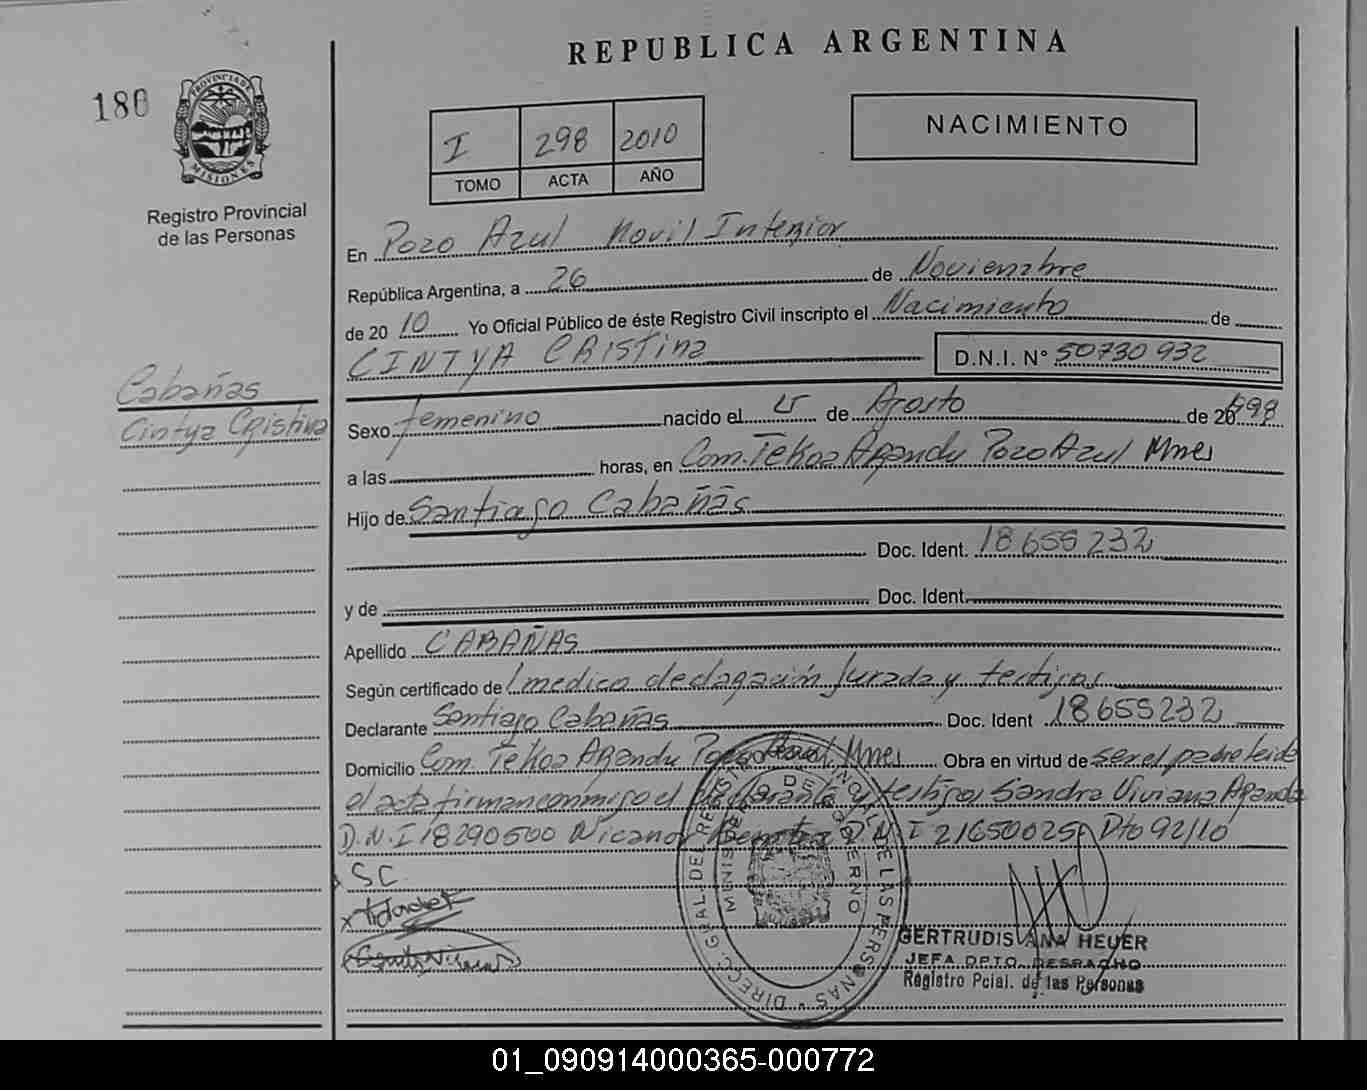 REPUBLICA ARGENTINA
186
PROVINCIA DE
MISIONES
Registro Provincial
de las Personas
I 298 2010
TOMO ACTA AÑO
NACIMIENTO
En Pozo Azul Movil Interior
República Argentina, a 26 de Noviembre
de 20 10 Yo Oficial Público de éste Registro Civil inscripto el Nacimiento de
CINTYA CRistina D.N.I. N° 50730932
Cabañas
Cintya Cristina
Sexo femenino nacido el de Agosto de 20
a las horas, en Com. Tekoa Arandu Pozo Azul Mnes
Hijo de Santiago Cabañas
Doc. Ident. 18655232
y de Doc. Ident.
Apellido CABAÑAS
Según certificado de medico declaración Jurada y testigos
Declarante Santiago Cabañas Doc. Ident 18655232
Domicilio Com. Tekoa Arandu Pozo Azul Mnes Obra en virtud de ser el padre leida
el acta firman conmigo el declarante y testigos Sandra Viviana
D.N.I 18290500 Nicanor D.N.I 21650025 Dto 92/10
SC
DIRECC. GRAL. DEL REGISTRO PROVINCIAL DE LAS PERSONAS
MINISTERIO DE GOBIERNO
GERTRUDIS ANA HEUER
JEFA DPTO. DESPACHO
Registro Pcial. de las Personas
01_090914000365-000772